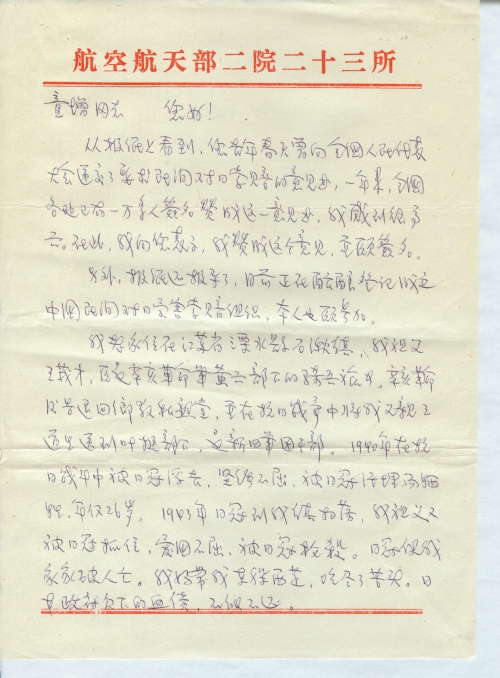 航空航天部二院二十三所
童增同志 您好！
从报纸上看到，您去年春天曾向全国人民代表
大会递交了要求民间对日索赔的意见书，一年来，全国
各地已有一万多人签名赞成这一意见书，我感到很高
兴。在此，我向您表示，我赞成这个意见，并愿签名。
另外，报纸还报导了，目前正在酝酿登记成立
中国民间对日受害索赔组织，本人也愿参加。
我老家住在江苏省溧水县石湫镇，我祖父
王茂才，因是辛亥革命军黄兴部下的骑兵。辛亥革命
后告退回乡教私塾堂，并在抗日战争中将我父亲王
道生送到叶挺部下，是新四军团干部。1940年在抗
日战争中被日寇俘去，坚贞不屈，被日寇活埋而牺
牲，年仅26岁。1943年日寇到我镇扫荡，我祖父又
被日寇抓住，宁因不屈，被日寇枪杀。日寇使我
家家破人亡。我妈带我东躲西走，吃尽了苦头。日
本政府欠下的血债，不能不还。